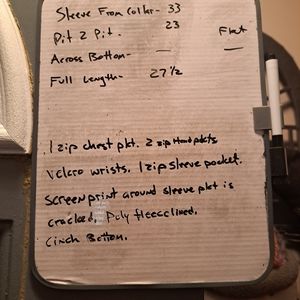 Sleeve From Coller- 33
Pit 2 Pit. 23 Flat
Across Bottom- — —
Full Length- 27 1/2
1 zip chest pkt. 2 zip Hand pkts
Velcro wrists. 1 zip sleeve pocket.
Screen print around sleeve pkt is
cracked. Poly fleece lined.
Cinch Bottom.